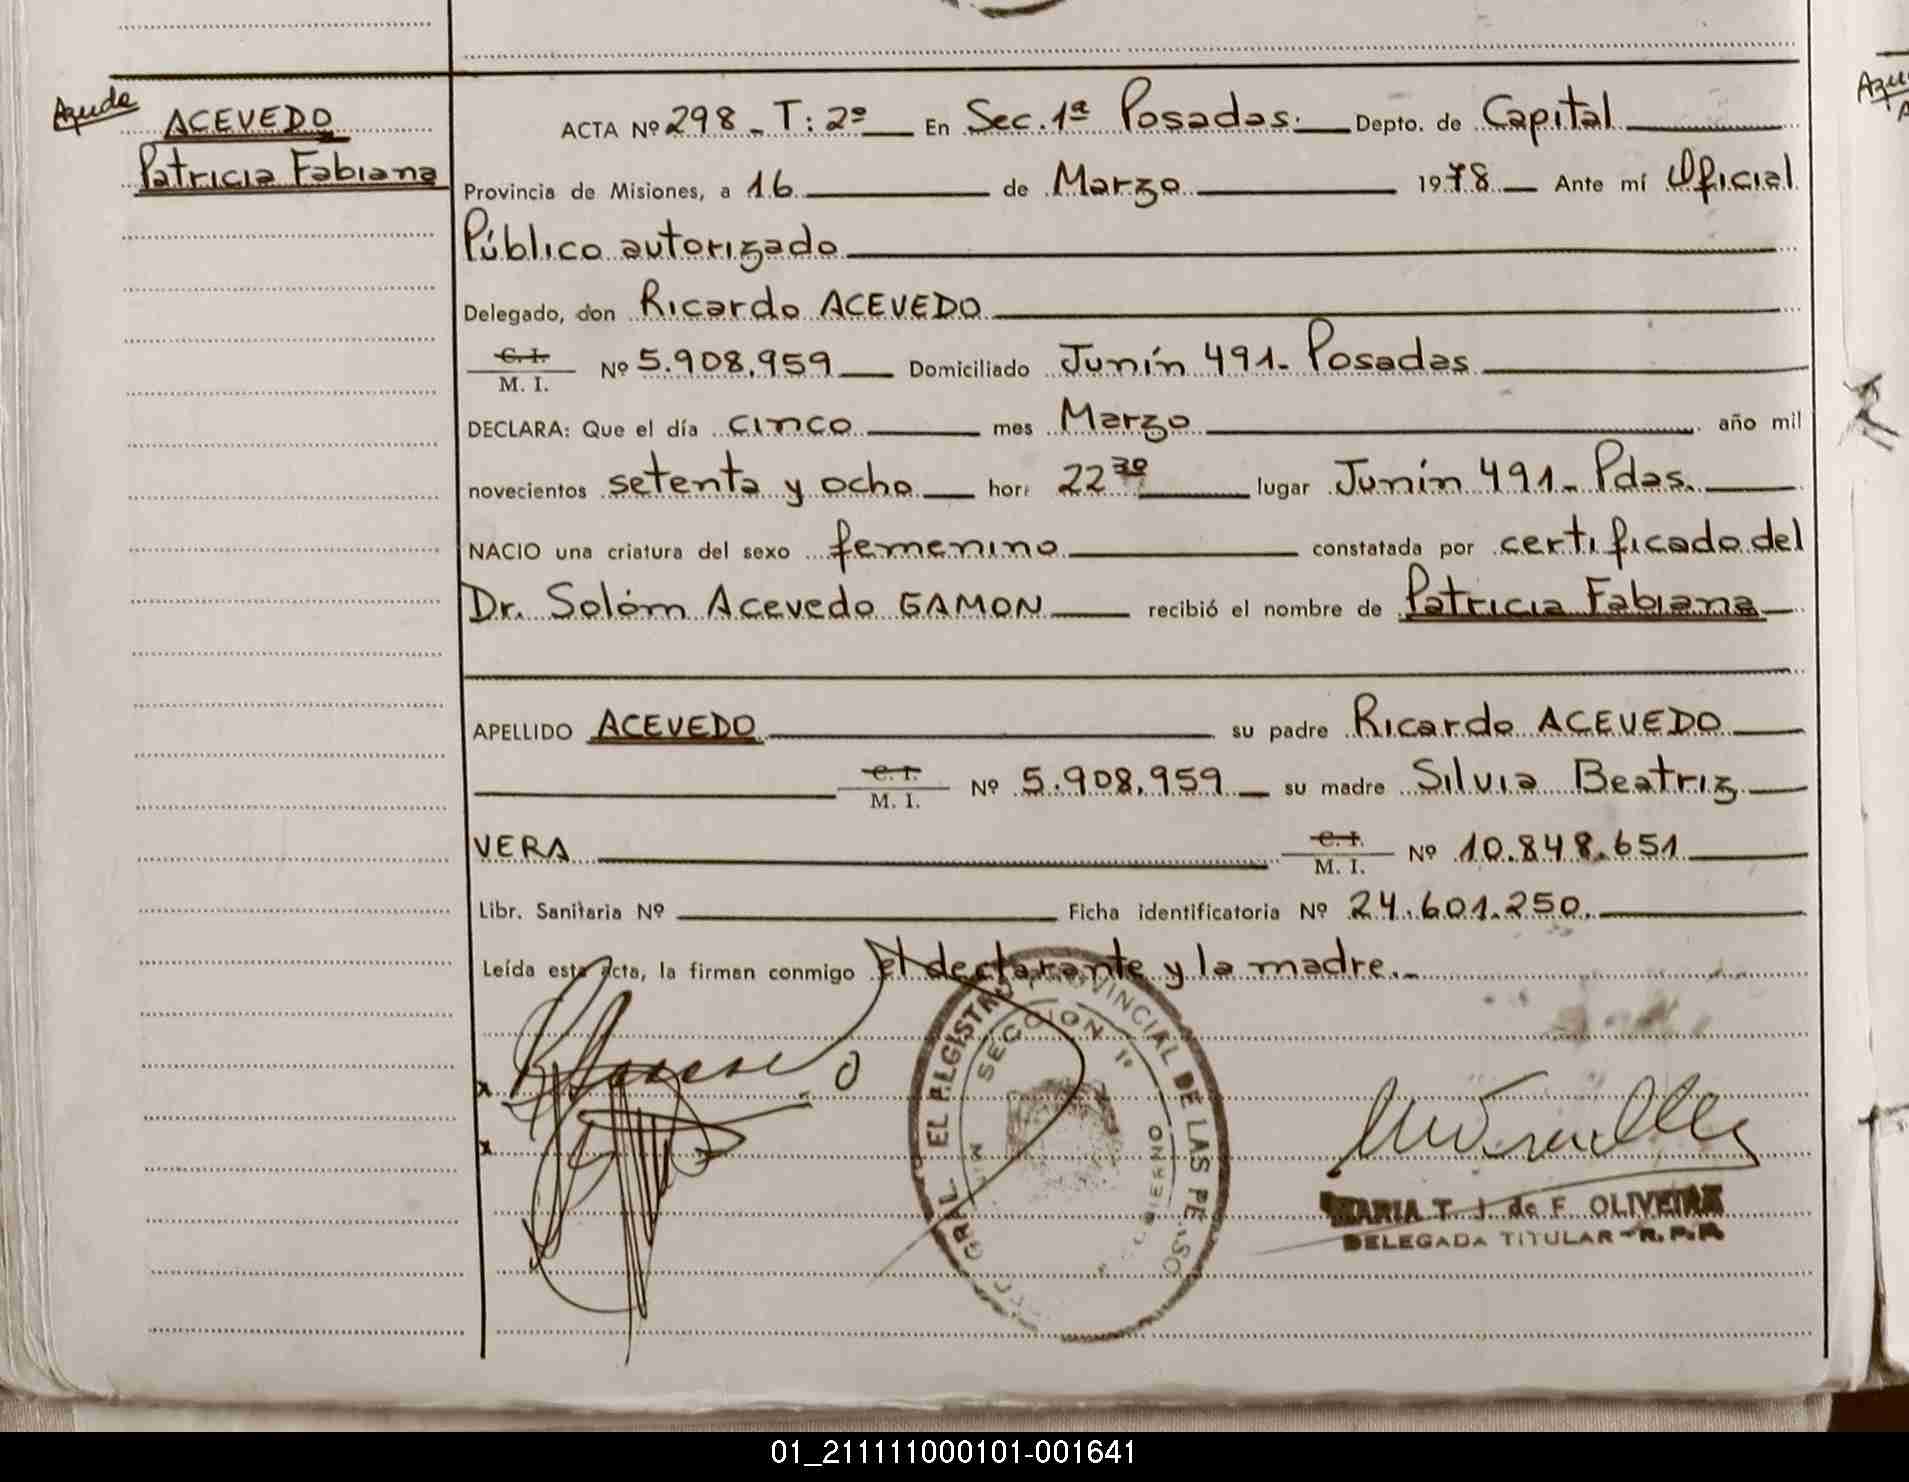 Ayuda
ACEVEDO
Patricia Fabiana
ACTA Nº 298 - T: 2º En Sec. 1ª Posadas. Depto. de Capital
Provincia de Misiones, a 16 de Marzo 1978 Ante mí Oficial
Público autorizado
Delegado, don Ricardo ACEVEDO
C. I.
M. I. Nº 5.908.959 Domiciliado Junín 491 - Posadas
DECLARA: Que el día cinco mes Marzo año mil
novecientos setenta y ocho hora 22 30 lugar Junín 491 - Pdas.
NACIO una criatura del sexo femenino constatada por certificado del
Dr. Solóm Acevedo GAMON recibió el nombre de Patricia Fabiana
APELLIDO ACEVEDO su padre Ricardo ACEVEDO
C. I.
M. I. Nº 5.908.959 su madre Silvia Beatriz
VERA C. I.
M. I. Nº 10.848.651
Libr. Sanitaria Nº Ficha identificatoria Nº 24.601.250.
Leída esta acta, la firman conmigo el declarante y la madre.-
x
x
GRAL. EL REGISTRO PROVINCIAL DE LAS PERSO
SECCION 1º
MIN GOBIERNO
MARIA T. J. de F. OLIVEIRA
DELEGADA TITULAR - R.P.P.
01_211111000101-001641